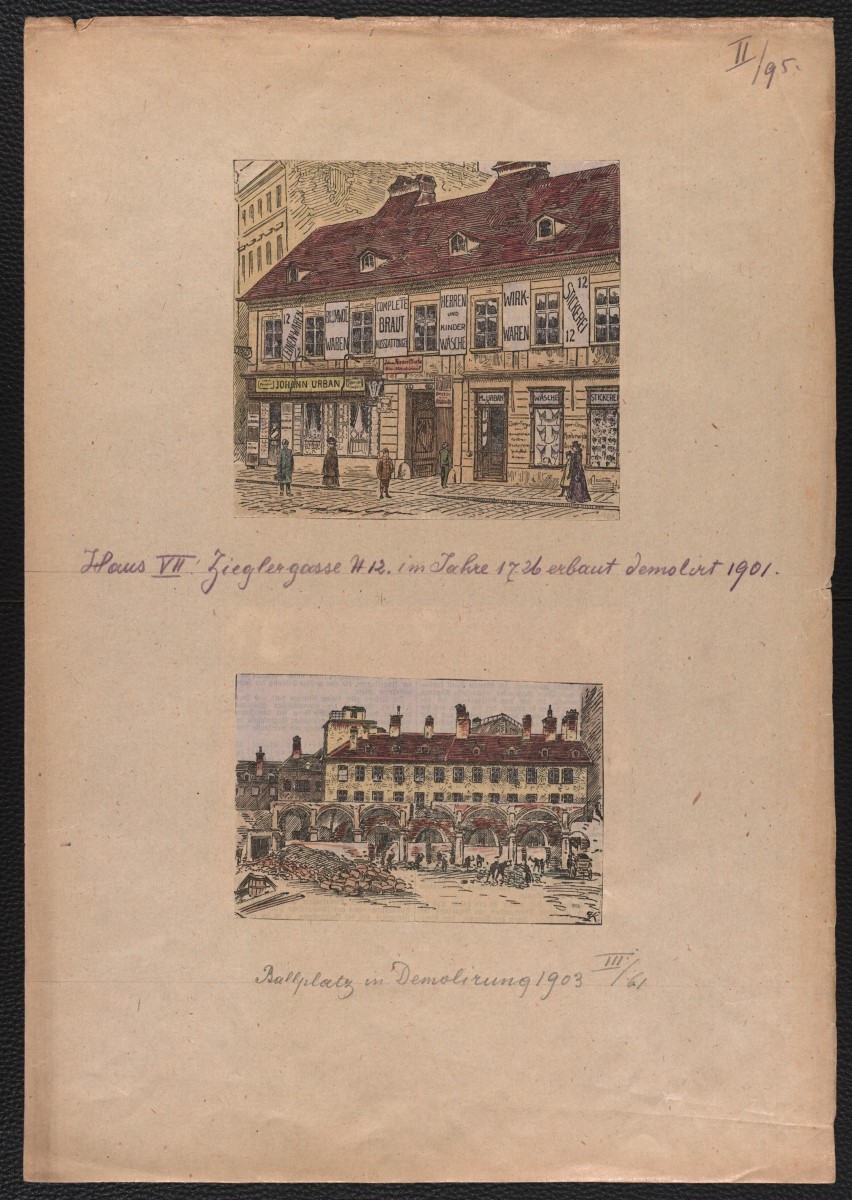 II/95.
12
LEINENWAREN
12
BAUMWOL
WAREN
COMPLETE
BRAUT
AUSSTATTUNG
HERREN
UND
KINDER
WÄSCHE
WIRK-
WAREN
12
STICKEREI
12
JOHANN URBAN
H. URBAN
WÄSCHE
STICKEREI
Haus VII. Zieglergasse N 12. im Jahre 1726 erbaut demolirt 1901.
Ballplatz in Demolirung 1903 III/61